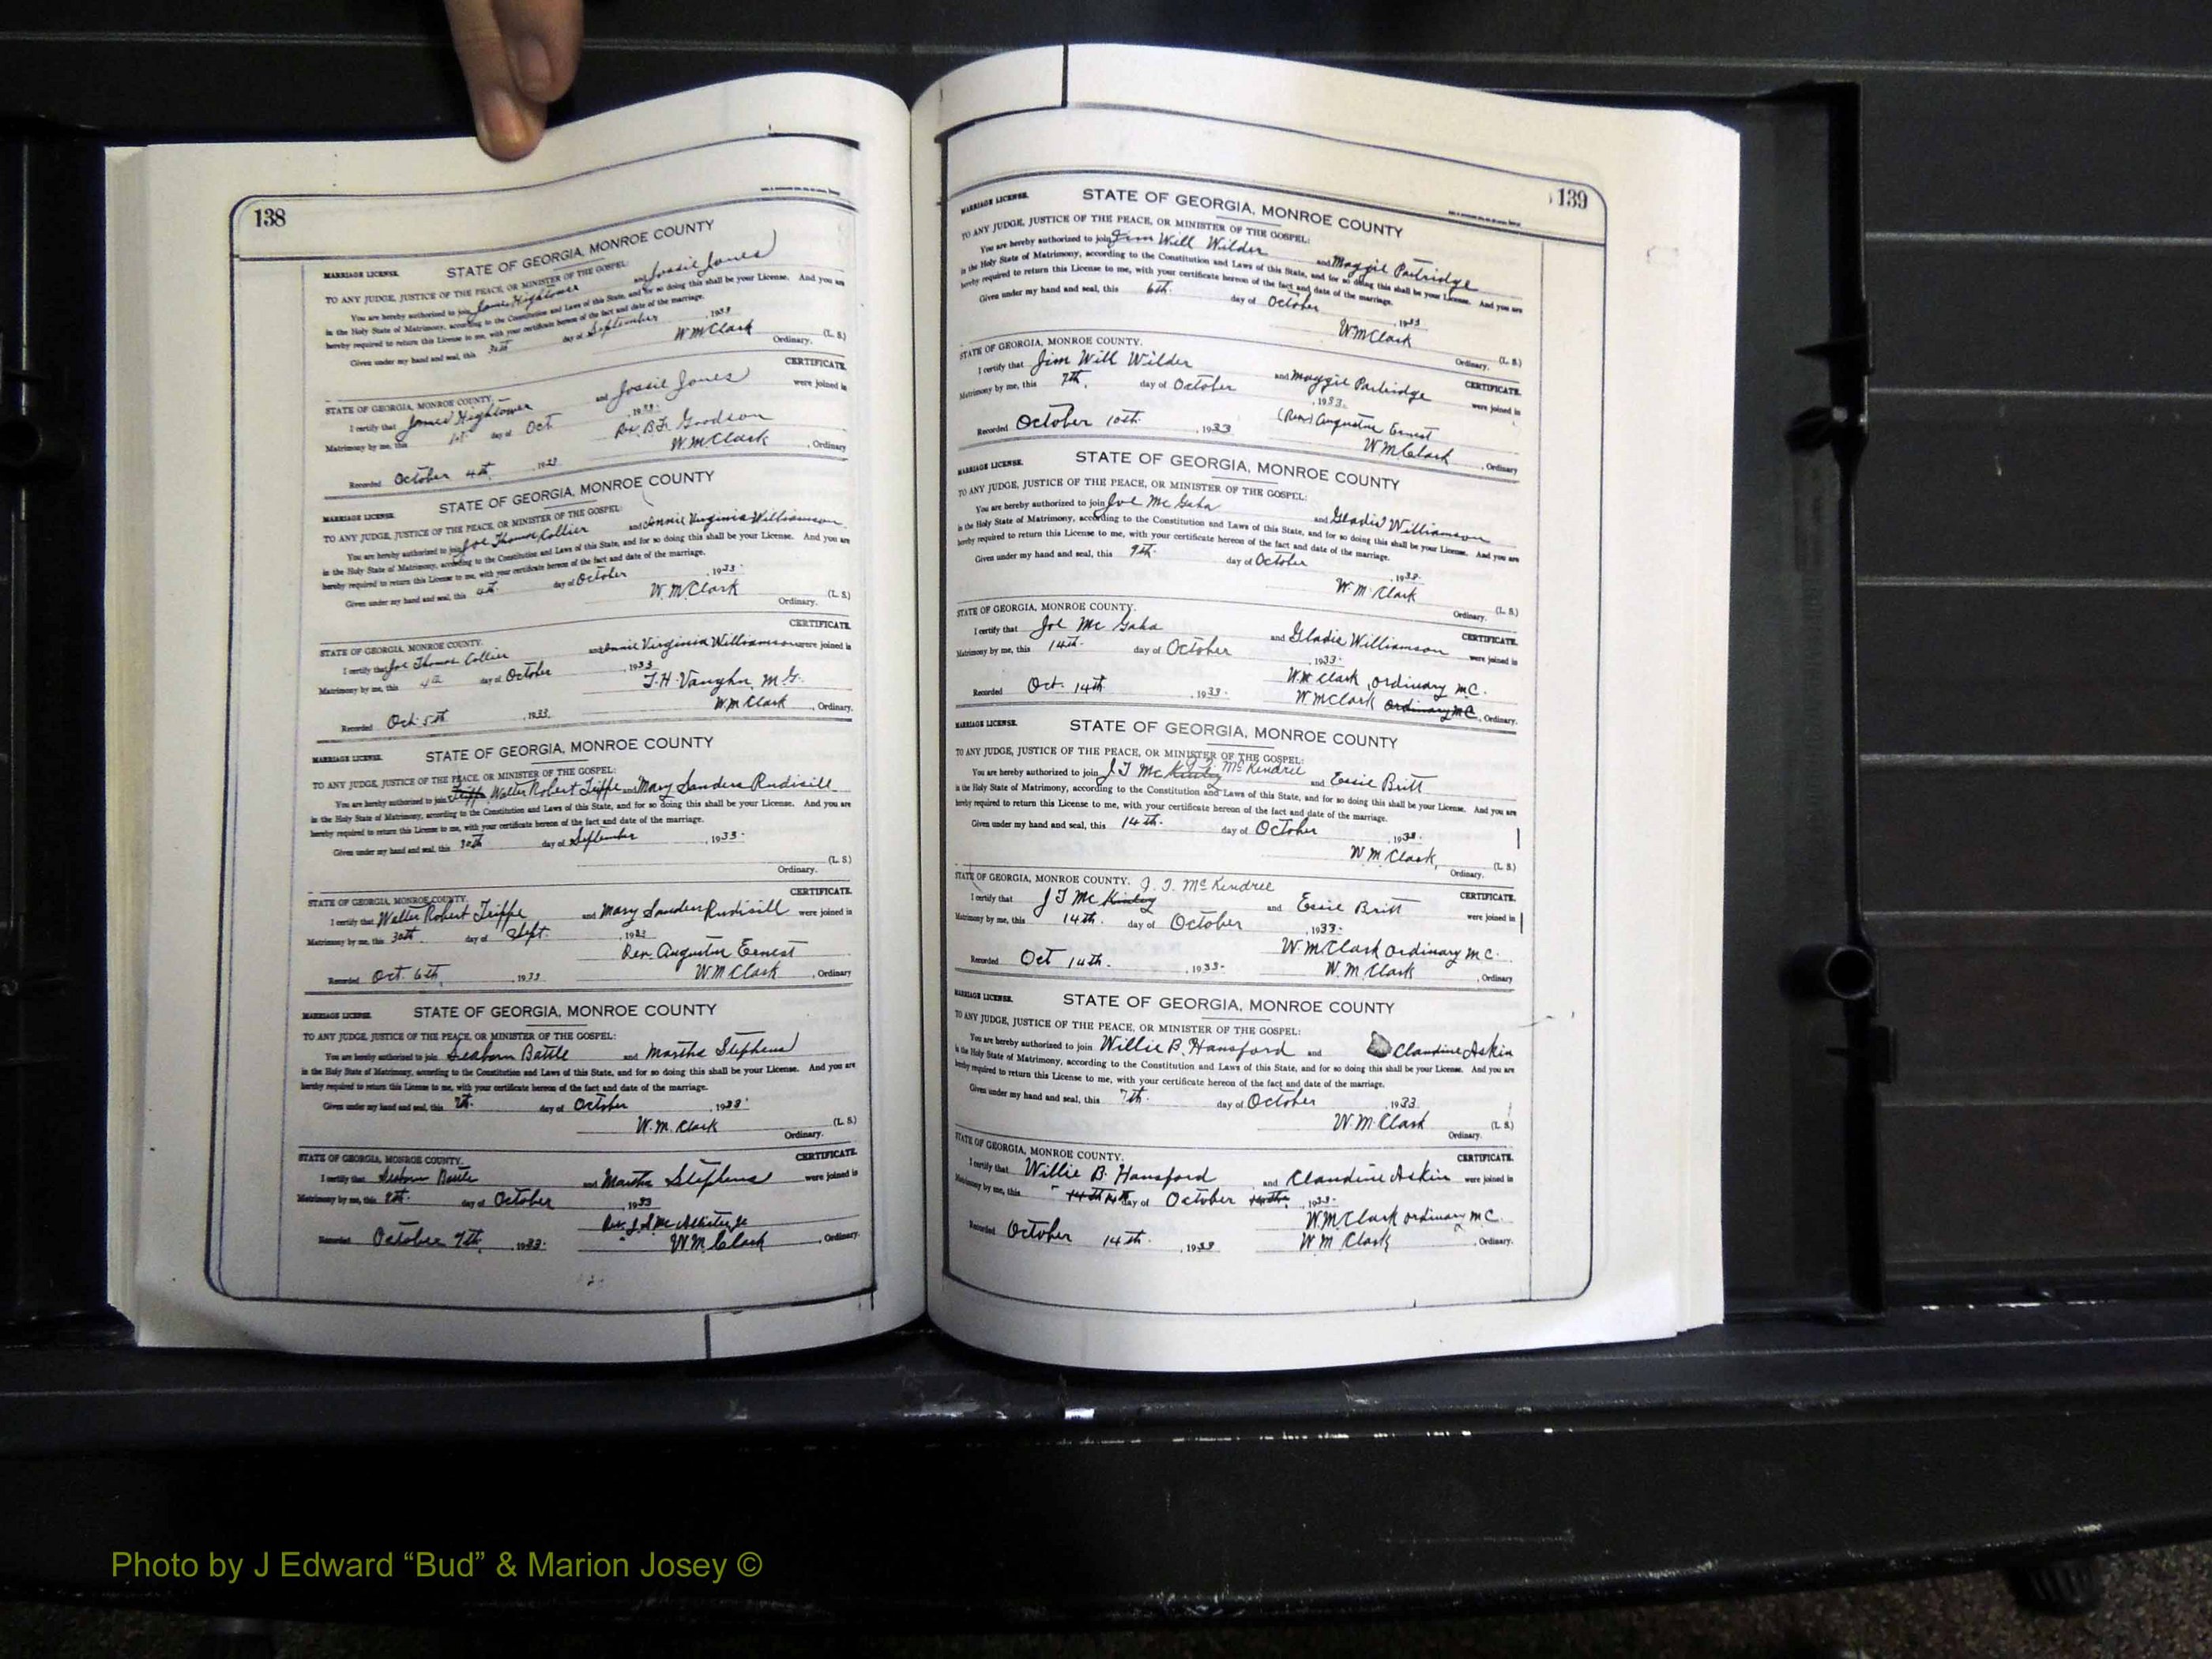 138
MARRIAGE LICENSE. STATE OF GEORGIA, MONROE COUNTY
TO ANY JUDGE, JUSTICE OF THE PEACE, OR MINISTER OF THE GOSPEL:
You are hereby authorized to join James Hightower and Jossie Jones
in the Holy State of Matrimony, according to the Constitution and Laws of this State, and for so doing this shall be your License. And you are
hereby required to return this License to me, with your certificate hereon of the fact and date of the marriage.
Given under my hand and seal, this 30th day of September, 1933
W M Clark (L. S.)
Ordinary.
STATE OF GEORGIA, MONROE COUNTY. CERTIFICATE.
I certify that James Hightower and Jossie Jones were joined in
Matrimony by me, this 1st day of Oct, 1933.
Rev. B. F. Goodson
Recorded October 4th, 1933 W M Clark, Ordinary
MARRIAGE LICENSE. STATE OF GEORGIA, MONROE COUNTY
TO ANY JUDGE, JUSTICE OF THE PEACE, OR MINISTER OF THE GOSPEL:
You are hereby authorized to join Joe Thomas Collier and Annie Virginia Williamson
in the Holy State of Matrimony, according to the Constitution and Laws of this State, and for so doing this shall be your License. And you are
hereby required to return this License to me, with your certificate hereon of the fact and date of the marriage.
Given under my hand and seal, this 4th. day of October, 1933.
W. M. Clark (L. S.)
Ordinary.
CERTIFICATE.
STATE OF GEORGIA, MONROE COUNTY.
I certify that Joe Thomas Collier and Annie Virginia Williamson were joined in
Matrimony by me, this 4th day of October, 1933
J. H. Vaughn, M. G.
Recorded Oct. 5th, 1933. W. M Clark, Ordinary.
MARRIAGE LICENSE. STATE OF GEORGIA, MONROE COUNTY
TO ANY JUDGE, JUSTICE OF THE PEACE, OR MINISTER OF THE GOSPEL:
You are hereby authorized to join Walter Robert Trippe and Mary Sanders Rudisill
in the Holy State of Matrimony, according to the Constitution and Laws of this State, and for so doing this shall be your License. And you are
hereby required to return this License to me, with your certificate hereon of the fact and date of the marriage.
Given under my hand and seal, this 30th day of September, 1933.
(L. S.)
Ordinary.
STATE OF GEORGIA, MONROE COUNTY. CERTIFICATE.
I certify that Walter Robert Trippe and Mary Sanders Rudisill were joined in
Matrimony by me, this 30th. day of Sept., 1933
Rev Augustus Ernest
Recorded Oct. 6th, 1933 W. M Clark, Ordinary
MARRIAGE LICENSE. STATE OF GEORGIA, MONROE COUNTY
TO ANY JUDGE, JUSTICE OF THE PEACE, OR MINISTER OF THE GOSPEL:
You are hereby authorized to join Seaborn Battle and Martha Stephens
in the Holy State of Matrimony, according to the Constitution and Laws of this State, and for so doing this shall be your License. And you are
hereby required to return this License to me, with your certificate hereon of the fact and date of the marriage.
Given under my hand and seal, this day of October, 1933.
W. M. Clark (L. S.)
Ordinary.
STATE OF GEORGIA, MONROE COUNTY. CERTIFICATE.
I certify that Seaborn Battle and Martha Stephens were joined in
Matrimony by me, this day of October, 1933
Rev.
Recorded October 7th, 1933. W M. Clark, Ordinary.
139
MARRIAGE LICENSE. STATE OF GEORGIA, MONROE COUNTY
TO ANY JUDGE, JUSTICE OF THE PEACE, OR MINISTER OF THE GOSPEL:
You are hereby authorized to join Jim Will Wilder and Maggie Partridge
in the Holy State of Matrimony, according to the Constitution and Laws of this State, and for so doing this shall be your License. And you are
hereby required to return this License to me, with your certificate hereon of the fact and date of the marriage.
Given under my hand and seal, this 6th. day of October, 1933
W. M Clark (L. S.)
Ordinary.
STATE OF GEORGIA, MONROE COUNTY. CERTIFICATE.
I certify that Jim Will Wilder and Maggie Partridge were joined in
Matrimony by me, this 7th. day of October, 1933.
(Rev) Augustus Ernest
Recorded October 10th., 1933 W M Clark, Ordinary
MARRIAGE LICENSE. STATE OF GEORGIA, MONROE COUNTY
TO ANY JUDGE, JUSTICE OF THE PEACE, OR MINISTER OF THE GOSPEL:
You are hereby authorized to join Joe Mc Gaha and Gladis Williamson
in the Holy State of Matrimony, according to the Constitution and Laws of this State, and for so doing this shall be your License. And you are
hereby required to return this License to me, with your certificate hereon of the fact and date of the marriage.
Given under my hand and seal, this 9th. day of October, 1933.
W. M. Clark (L. S.)
Ordinary.
STATE OF GEORGIA, MONROE COUNTY. CERTIFICATE.
I certify that Joe Mc Gaha and Gladis Williamson were joined in
Matrimony by me, this 14th. day of October, 1933.
W. M Clark, Ordinary M. C.
Recorded Oct. 14th, 1933. W M Clark Ordinary M C, Ordinary.
MARRIAGE LICENSE. STATE OF GEORGIA, MONROE COUNTY
TO ANY JUDGE, JUSTICE OF THE PEACE, OR MINISTER OF THE GOSPEL:
You are hereby authorized to join J T Mc Kinley J. T. McKendree and Essie Britt
in the Holy State of Matrimony, according to the Constitution and Laws of this State, and for so doing this shall be your License. And you are
hereby required to return this License to me, with your certificate hereon of the fact and date of the marriage.
Given under my hand and seal, this 14th. day of October, 1933.
W. M. Clark, (L. S.)
Ordinary.
STATE OF GEORGIA, MONROE COUNTY. J. T. McKendree CERTIFICATE.
I certify that J T Mc Kinley and Essie Britt were joined in
Matrimony by me, this 14th. day of October, 1933.
W. M Clark Ordinary M C.
Recorded Oct 14th., 1933. W. M. Clark, Ordinary
MARRIAGE LICENSE. STATE OF GEORGIA, MONROE COUNTY
TO ANY JUDGE, JUSTICE OF THE PEACE, OR MINISTER OF THE GOSPEL:
You are hereby authorized to join Willie B. Hansford and Claudine Askin
in the Holy State of Matrimony, according to the Constitution and Laws of this State, and for so doing this shall be your License. And you are
hereby required to return this License to me, with your certificate hereon of the fact and date of the marriage.
Given under my hand and seal, this 7th. day of October, 1933
W. M. Clark (L. S.)
Ordinary.
STATE OF GEORGIA, MONROE COUNTY. CERTIFICATE.
I certify that Willie B. Hansford and Claudine Askin were joined in
Matrimony by me, this 14th day of October, 1933.
W. M. Clark Ordinary M C.
Recorded October 14th., 1933 W M Clark, Ordinary.
Photo by J Edward “Bud” & Marion Josey ©